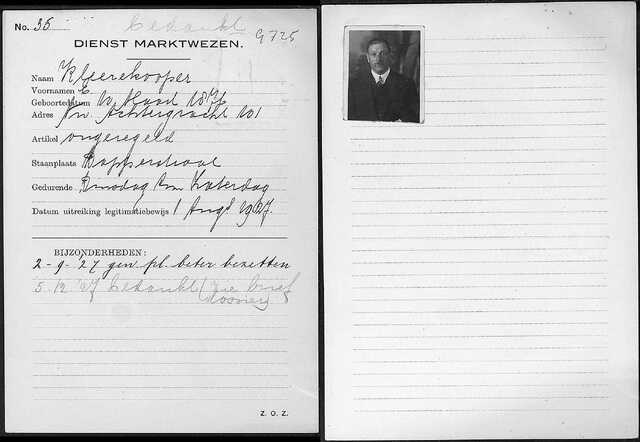 No. 35 bedankt G 725
DIENST MARKTWEZEN.
Naam Kleerekooper
Voornamen E
Geboortedatum 10 Maart 1876
Adres Nw Achtergracht 101
Artikel ongeregeld
Staanplaats Dapperstraat
Gedurende Dinsdag t/m Zaterdag
Datum uitreiking legitimatiebewijs 1 Aug 1927.
BIJZONDERHEDEN:
2-9-27 gen pl. beter bezetten
5-12-27 bedankt (zie brief
dossier)
Z. O. Z.